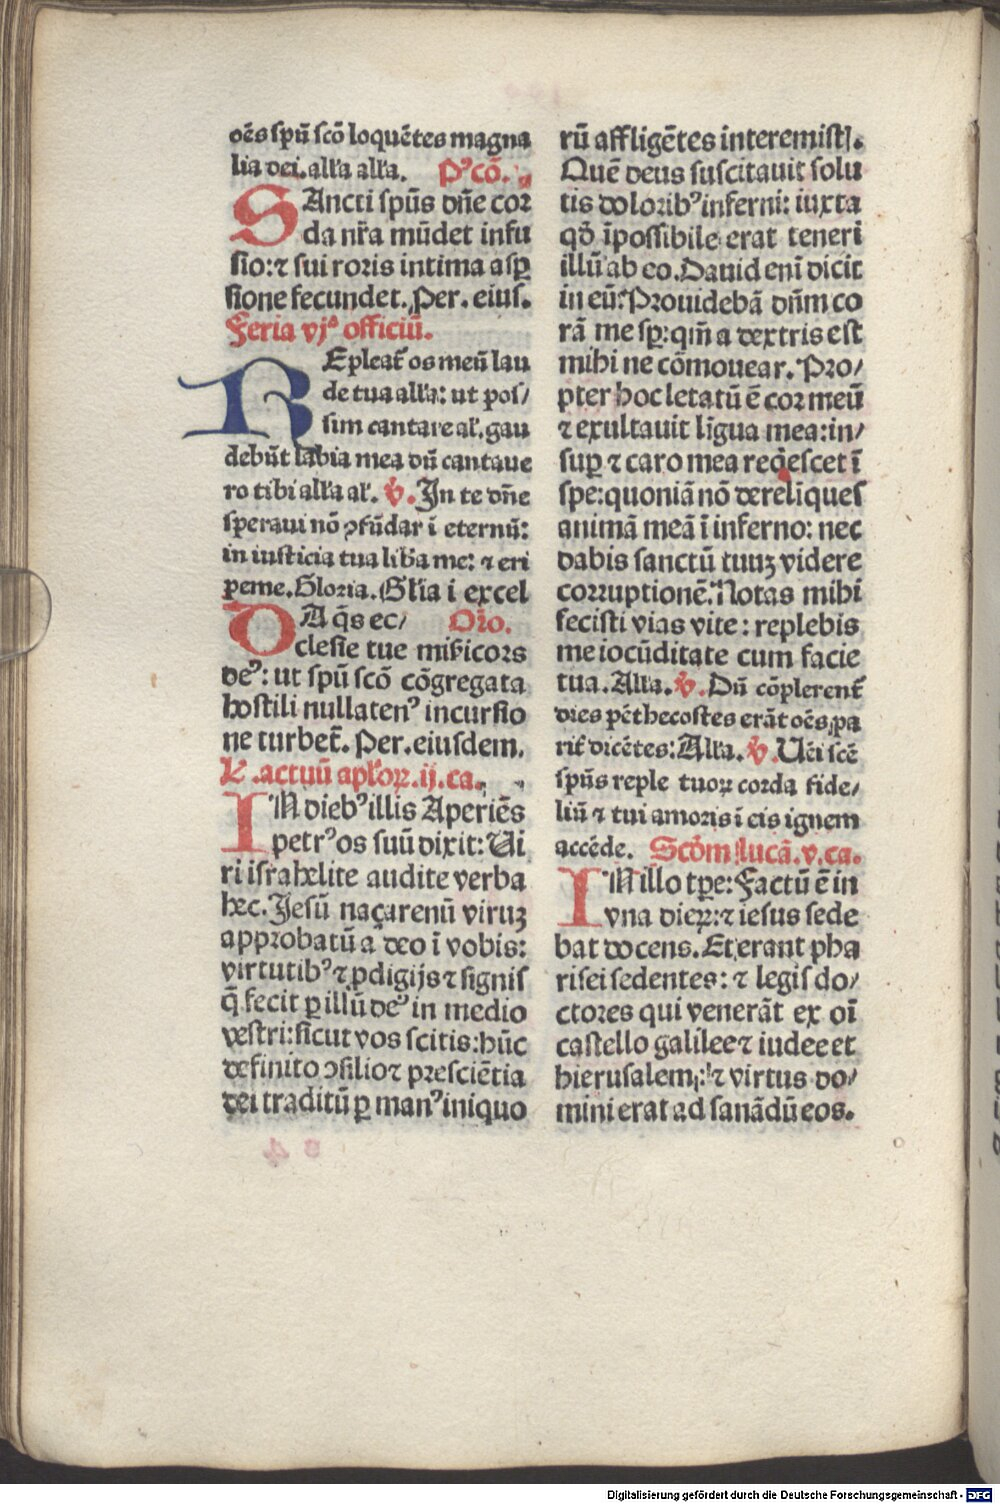 oẽs spũ scõ loquẽtes magna
lia dei. all'a all'a. Pꝰcõ.
SAncti spũs dñe cor
da nr̃a mũdet infu
sio: ⁊ sui roris intima asꝑ
sione fecundet. Per. eius.
Feria vjᵃ officiũ.
REpleat̃ os meũ lau
de tua all'a: ut pos/
sim cantare al'. gau
debũt labia mea dũ cantaue
ro tibi all'a al'. ℣. In te dñe
speraui nõ ꝯfũdar ĩ eternũ:
in iusticia tua lib̃a me: ⁊ eri
peme. Gloria. Gl'ia i excel
DA q̃s ec/ Or̃o.
clesie tue mis̃icors
deꝰ: ut spũ scõ cõgregata
hostili nullatenꝰ incursio
ne turbet̃. Per. eiusdem.
L'. actuũ apl'oꝝ. ij. ca.
IN diebꝰ illis Aperiẽs
petrꝰ os suũ dixit: Ui
ri israhelite audite verba
hec. Jesũ naçarenũ viruꝫ
approbatũ a deo ĩ vobis:
virtutibꝰ ⁊ ꝓdigijs ⁊ signis
q̃ fecit ꝑ illũ deꝰ in medio
vestri: sicut vos scitis: hũc
definito ꝯsilio ⁊ presciẽtia
dei traditũ ꝑ manꝰ iniquo
rũ affligẽtes interemistĩ.
Quẽ deus suscitauit solu
tis doloribꝰ inferni: iuxta
qđ ĩpossibile erat teneri
illũ ab eo. Dauid eni dicit
in eũ: Prouidebã dñm co
rã me sꝑ: qm̃ a dextris est
mihi ne cõmouear. Pro/
pter hoc letatũ ẽ cor meũ
⁊ exultauit lĩgua mea: in/
suꝑ ⁊ caro mea reqescet ĩ
spe: quoniã nõ derelĩques
animã meã ĩ inferno: nec
dabis sanctũ tuuꝫ videre
corruptionẽ. Notas mihi
fecisti vias vite: replebis
me iocũditate cum facie
tua. All'a. ℣. Dũ cõplerent̃
dies pẽthecostes erãt oẽs pa
rit̃ dicẽtes: All'a. ℣. Uẽi scẽ
spũs reple tuoꝝ corda fide/
liũ ⁊ tui amoris ĩ eis ignem
accẽde. Scđm lucã. v. ca.
IN illo tꝑe: Factũ ẽ in
vna dieꝝ: ⁊ iesus sede
bat docens. Et erant pha
risei sedentes: ⁊ legis do/
ctores qui venerãt ex oĩ
castello galilee ⁊ iudee et
hierusalem: ⁊ virtus do/
mini erat ad sanãdũ eos.
Digitalisierung gefördert durch die Deutsche Forschungsgemeinschaft - DFG